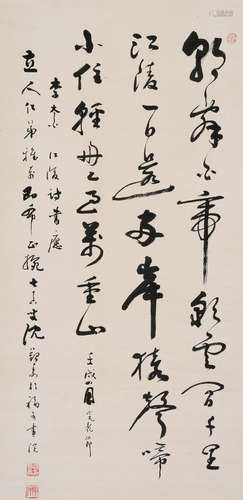 朝辭白帝彩雲間千里
江陵一日還兩岸猿聲啼
不住輕舟已過萬重山 壬戌 月 節
李太白江陵詩書應
立人仁弟雅屬即希正腕 七十六叟沈覲壽於福州